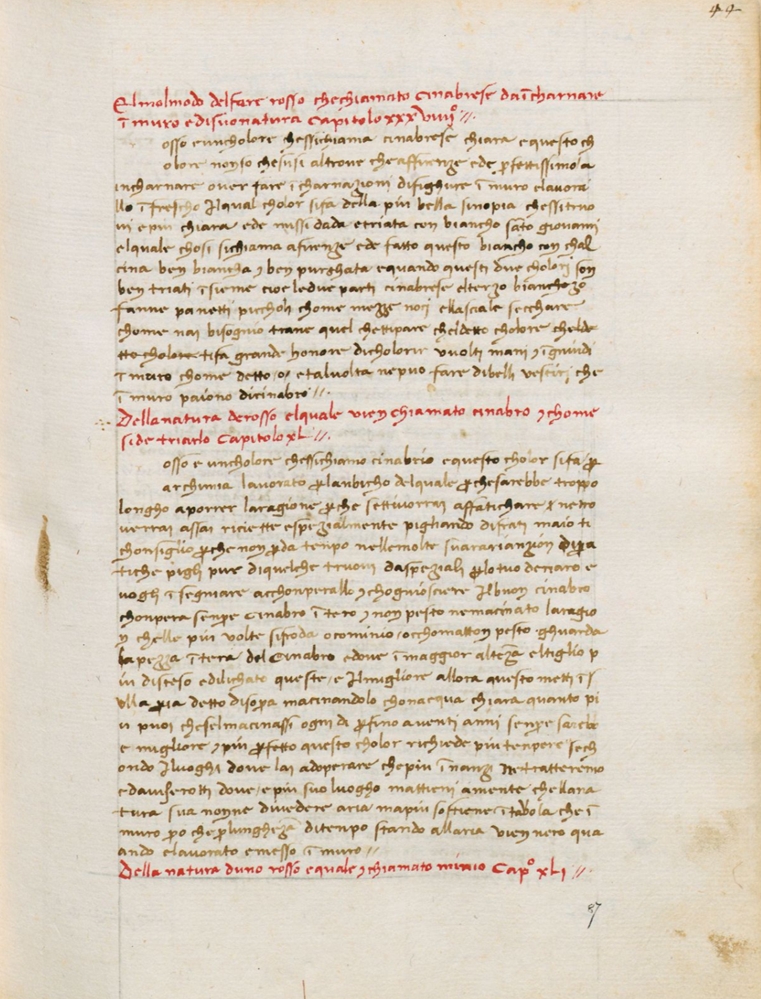 44
El molmodo delfare rosso chechiamato cinabrese daīcharnare
ī muro edisuonatura Capitolo xxxviiij° //.
osso e uncholore chessichiama cinabrese chiara equesto ch
olore nonso chesusi altrove cheaffirenze ede pfettissimo a
incharnare over fare īcharnazioni difighure ī muro elavora
llo ī frescho Ilqual cholor sifa della piu bella sinopia chessitruo
vi epiu chiara ede missidada etriata con biancho sāto giovanni
elquale chosi sichiama afirenze ede fatto questo biancho con chal
cina ben biancha ben purghata equando questi due cholori son
ben triati īsieme cioe ledue parti cinabrese elterzo bianchozo
fanne panetti piccholi chome mezze noci ellasciale secchare
chome nai bisognio trane quel chettipare cheldetto cholore chelde
tto cholore tifa grande honore dicholorir vuolti mani īgniudi
ī muro chome detto o etalvolta nepuo fare dibelli vestiri che
ī muro paiono dicinabro //.
Dellanatura derosso elquale vien chiamato cinabro chome
side triarlo Capitolo xL //.
osso e uncholore chessichiamo cinabrio equesto cholor sifa p
archimia lavorato planbicho delquale pchesarebbe troppo
longho aporrer laragione pche settivorrai affatichare netro
verrai assai riciette espezialmente pigliando difrati maio ti
chonsiglio pche non pda tenpo nellemolte svararianzion dipra
tiche pigli pure diquelche truovi daspeziali plotuo denaro e
vogli īsegniare acchonperallo chogniosciere Ilbuon cinabro
chonpera senpre cinabro ītero non pesto nemacinato laragio
n chelle piu volte sifroda ocominio occhomatton pesto ghuarda
lapezza ītera del Cinabro edove īmaggior alteza eltiglio p
iu disteso edilichato queste e Ilmigliore allora questo metti īs
ulla pia detto disopa macinandolo chonacqua chiara quanto pi
u puoi cheselmacinassi ogni di pfino aventi anni senpre sarebe
e migliore piu pfetto questo cholor richiede piu tenpere sech
ondo Iluoghi dove lai adoperare chepiu īnanzi ne tratteremo
edaviserotti dove e piu suo luogho mattieni amente chellana
tura sua nonne divedere aria mapiu sostiene ītavola che ī
muro po che plungheza ditenpo stando allaria vien nero qua
ando elavorato emesso ī muro //
Della natura duno rosso equale chiamato minio Cap° xLi //.
87